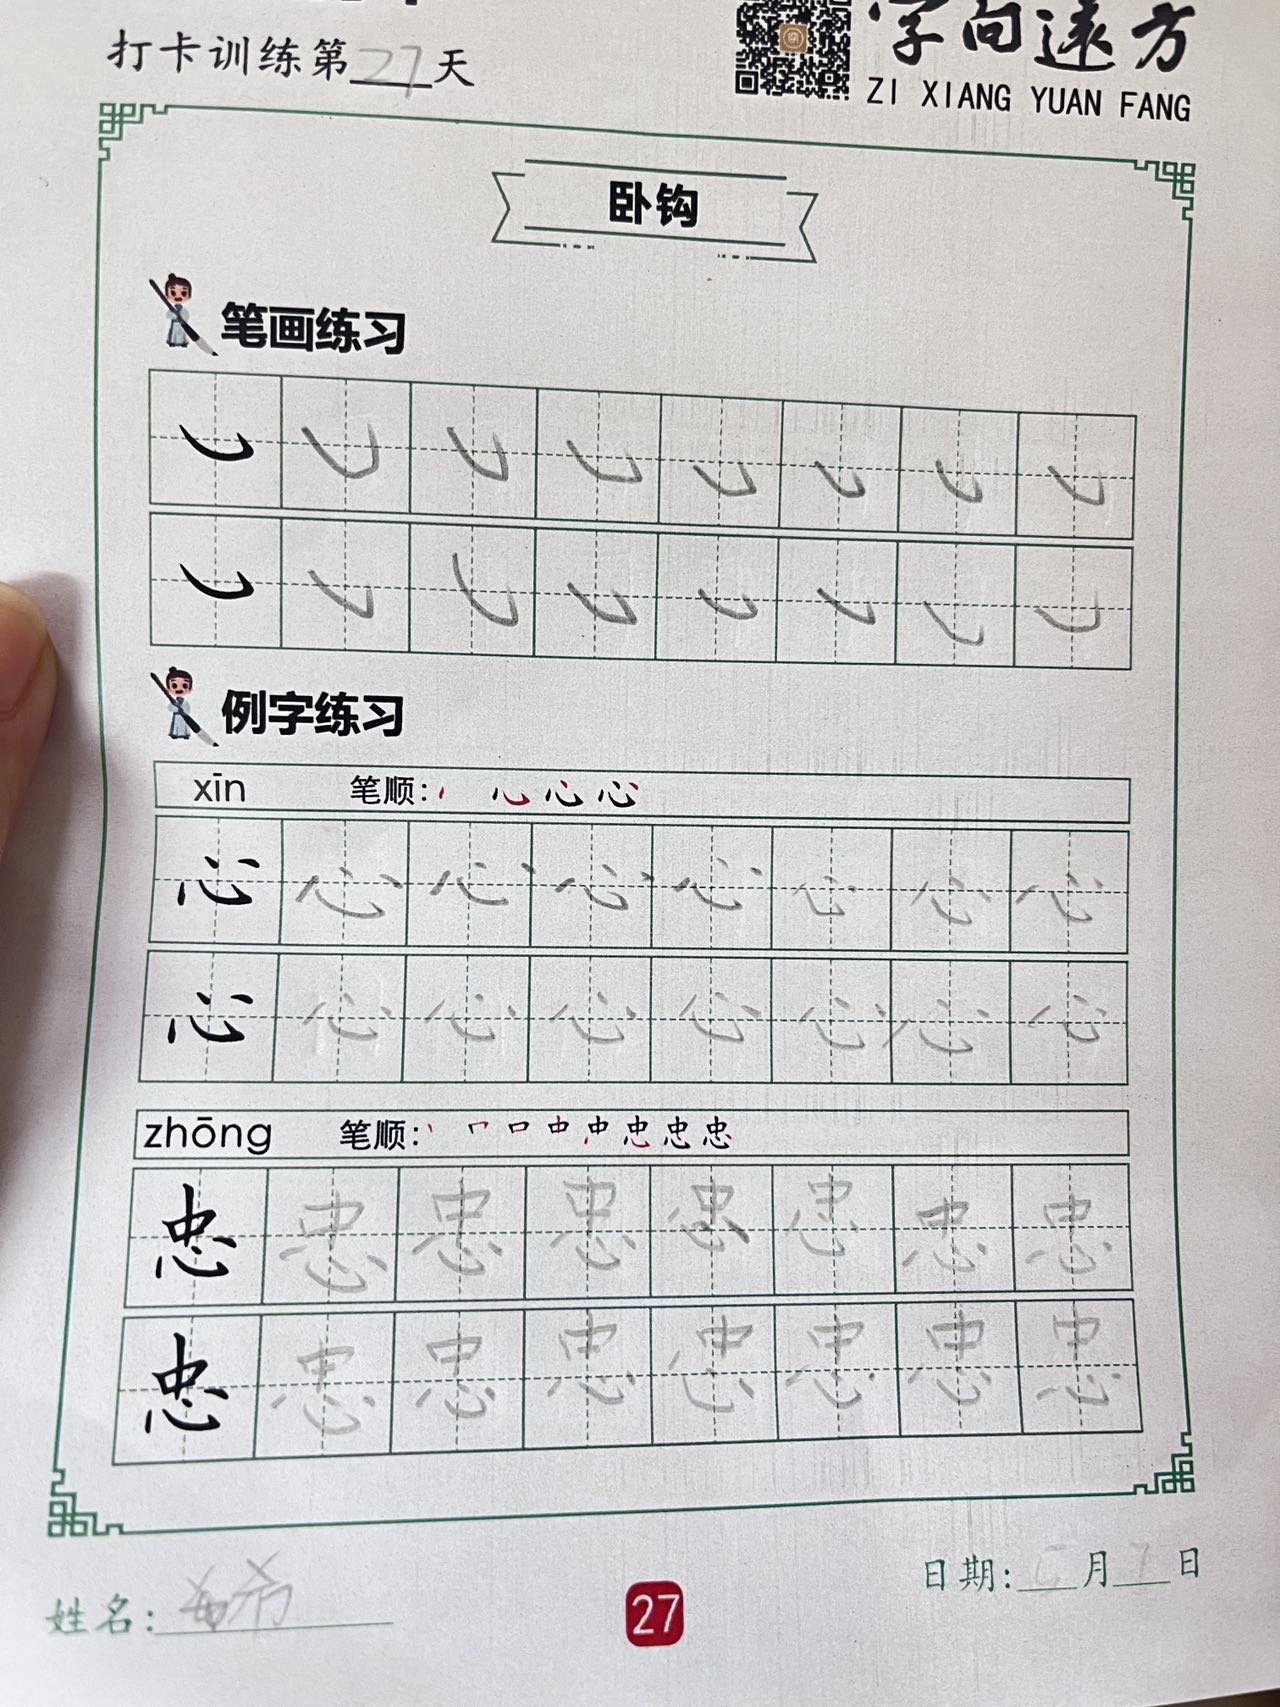 打卡训练第27天
字向远方
ZI XIANG YUAN FANG
卧钩
笔画练习
例字练习
xīn 笔顺: 心 心 心
心 心 心 心 心 心 心 心
心 心 心 心 心 心 心 心
zhōng 笔顺: 丶 口 中 中 忠 忠 忠
忠 忠 忠 忠 忠 忠 忠 忠
忠 忠 忠 忠 忠 忠 忠 忠
姓名: 希
日期: 月 7 日
27